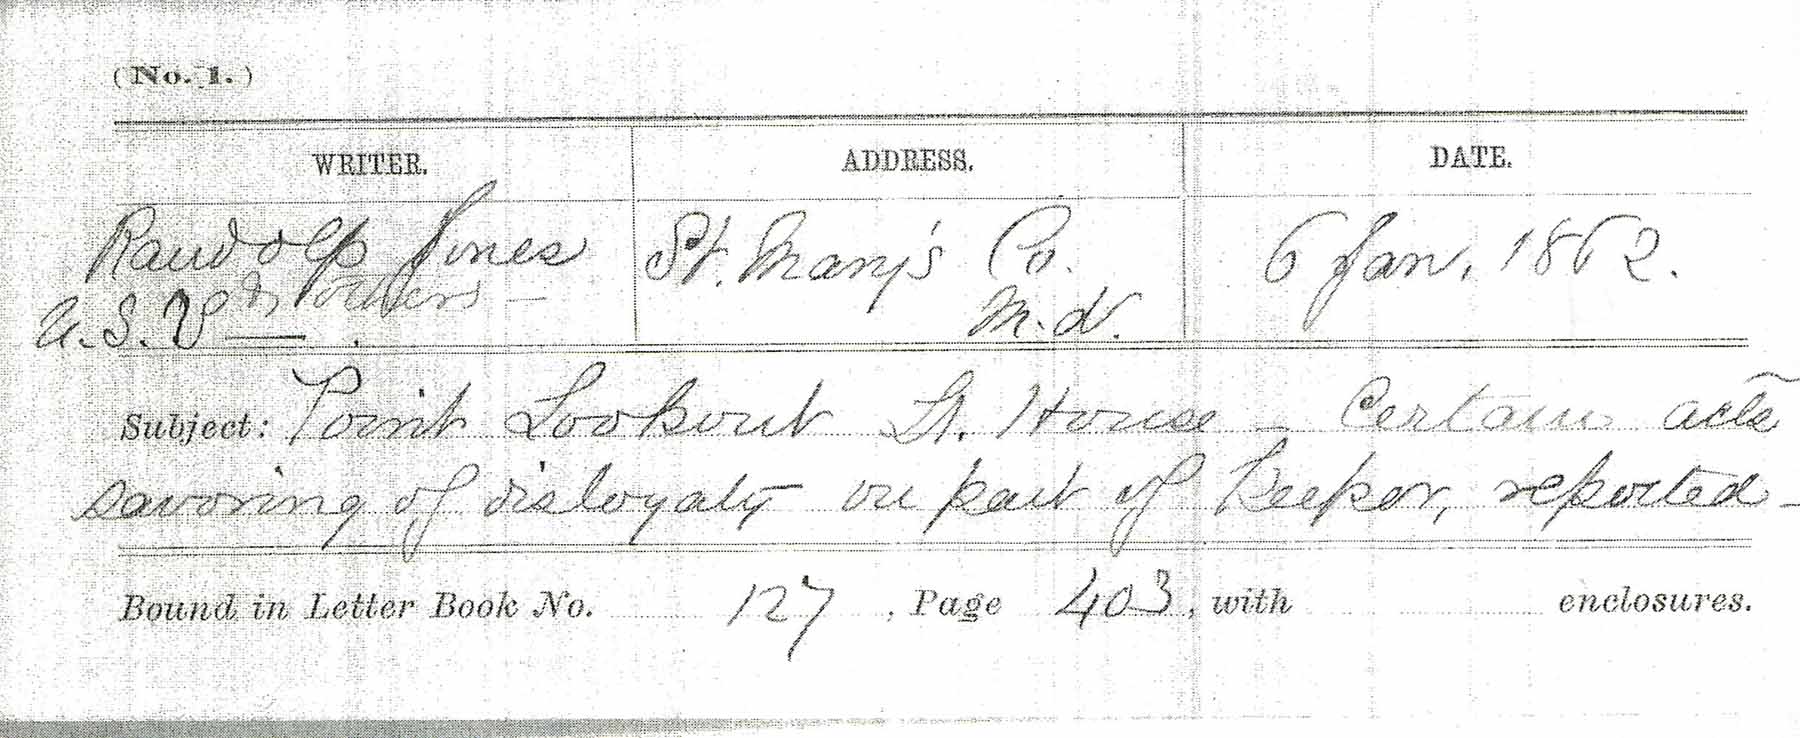 (No. 1.)
WRITER. ADDRESS. DATE.
Randolph Jones St. Mary's Co. 6 Jan. 1862.
& others —
U.S. — . M.d.
Subject: Point Lookout Lt. House — Certain acts
savoring of disloyalty on part of Keeper, reported —
Bound in Letter Book No. 127, Page 403, with enclosures.